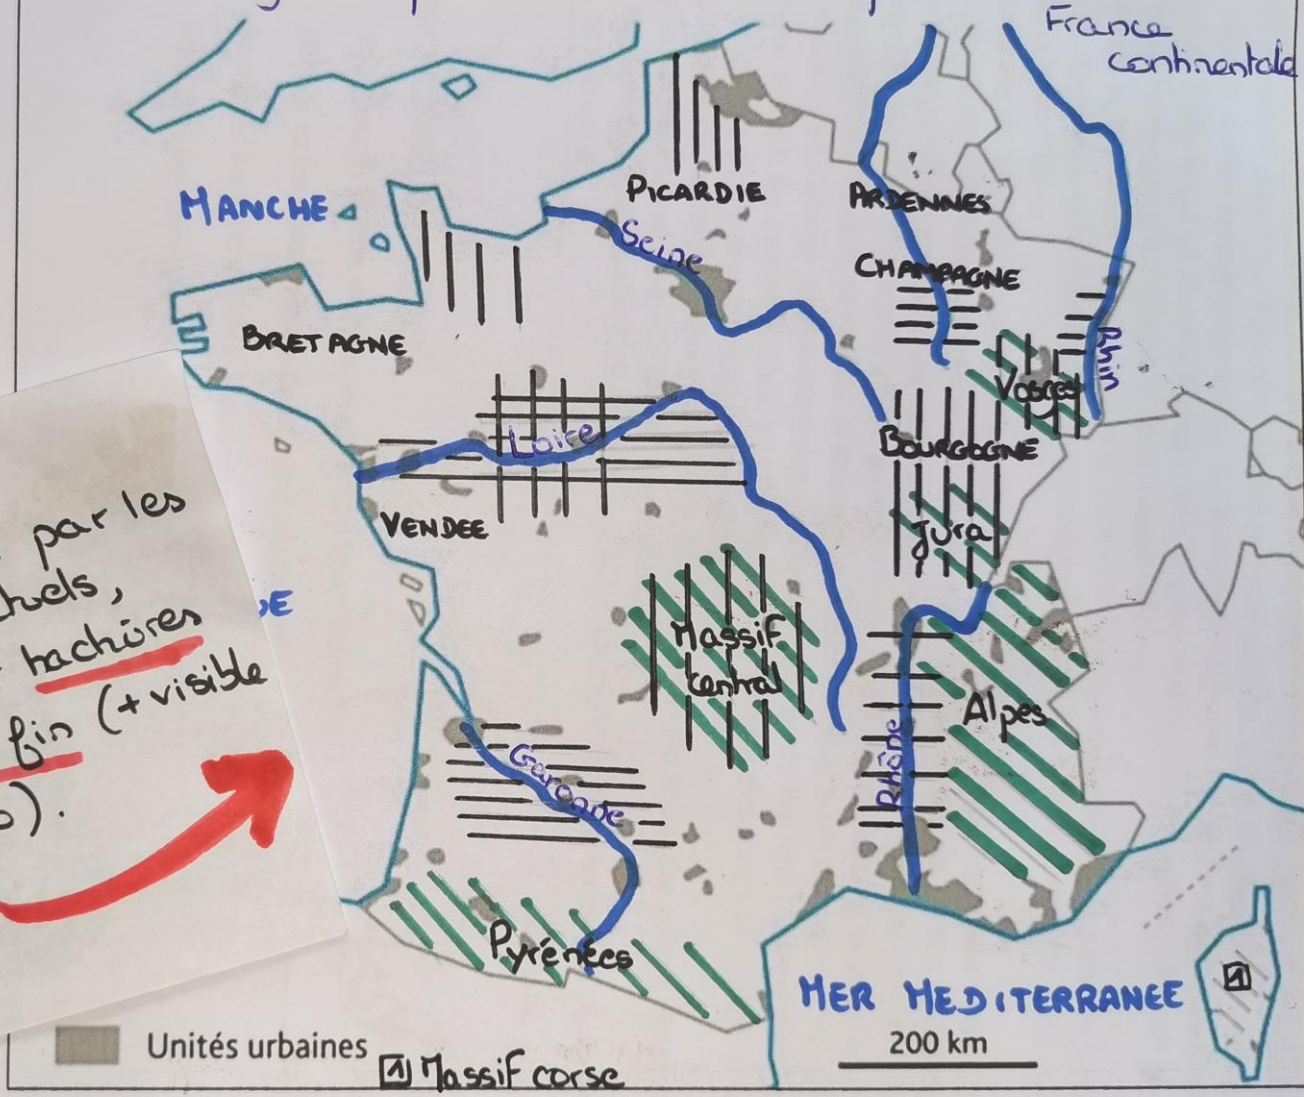 France
continentale
PICARDIE
MANCHE
ARDENNES
Seine
CHAMPAGNE
BRETAGNE
Rhin
Vosges
Loire
BOURGOGNE
VENDEE
Jura
par les
hachûres
fin (+ visible
Massif
central
Alpes
Rhône
Garonne
Pyrénées
MER MEDITERRANEE
200 km
1
Unités urbaines
1 Massif corse